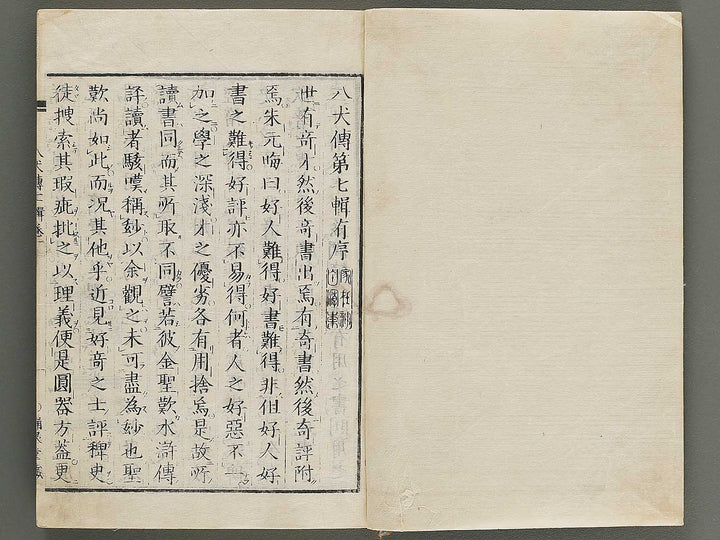 八犬傳第七輯有序
世有奇才然後奇書出焉有奇書然後奇評附
焉朱元晦曰好人難得好書難得非但好人好
書之難得好評亦不易得何者人之好惡不一
加之學之深淺才之優劣各有用捨焉是故呀
讀書同而其所取不同譬若彼金聖歎水滸傳
評讀者駭嘆稱玅以余觀之未可盡為玅也聖
歎尚如此而況其他乎近見好奇之士評稗史
徒搜索其瑕疵批之以理義便是圓器方蓋更